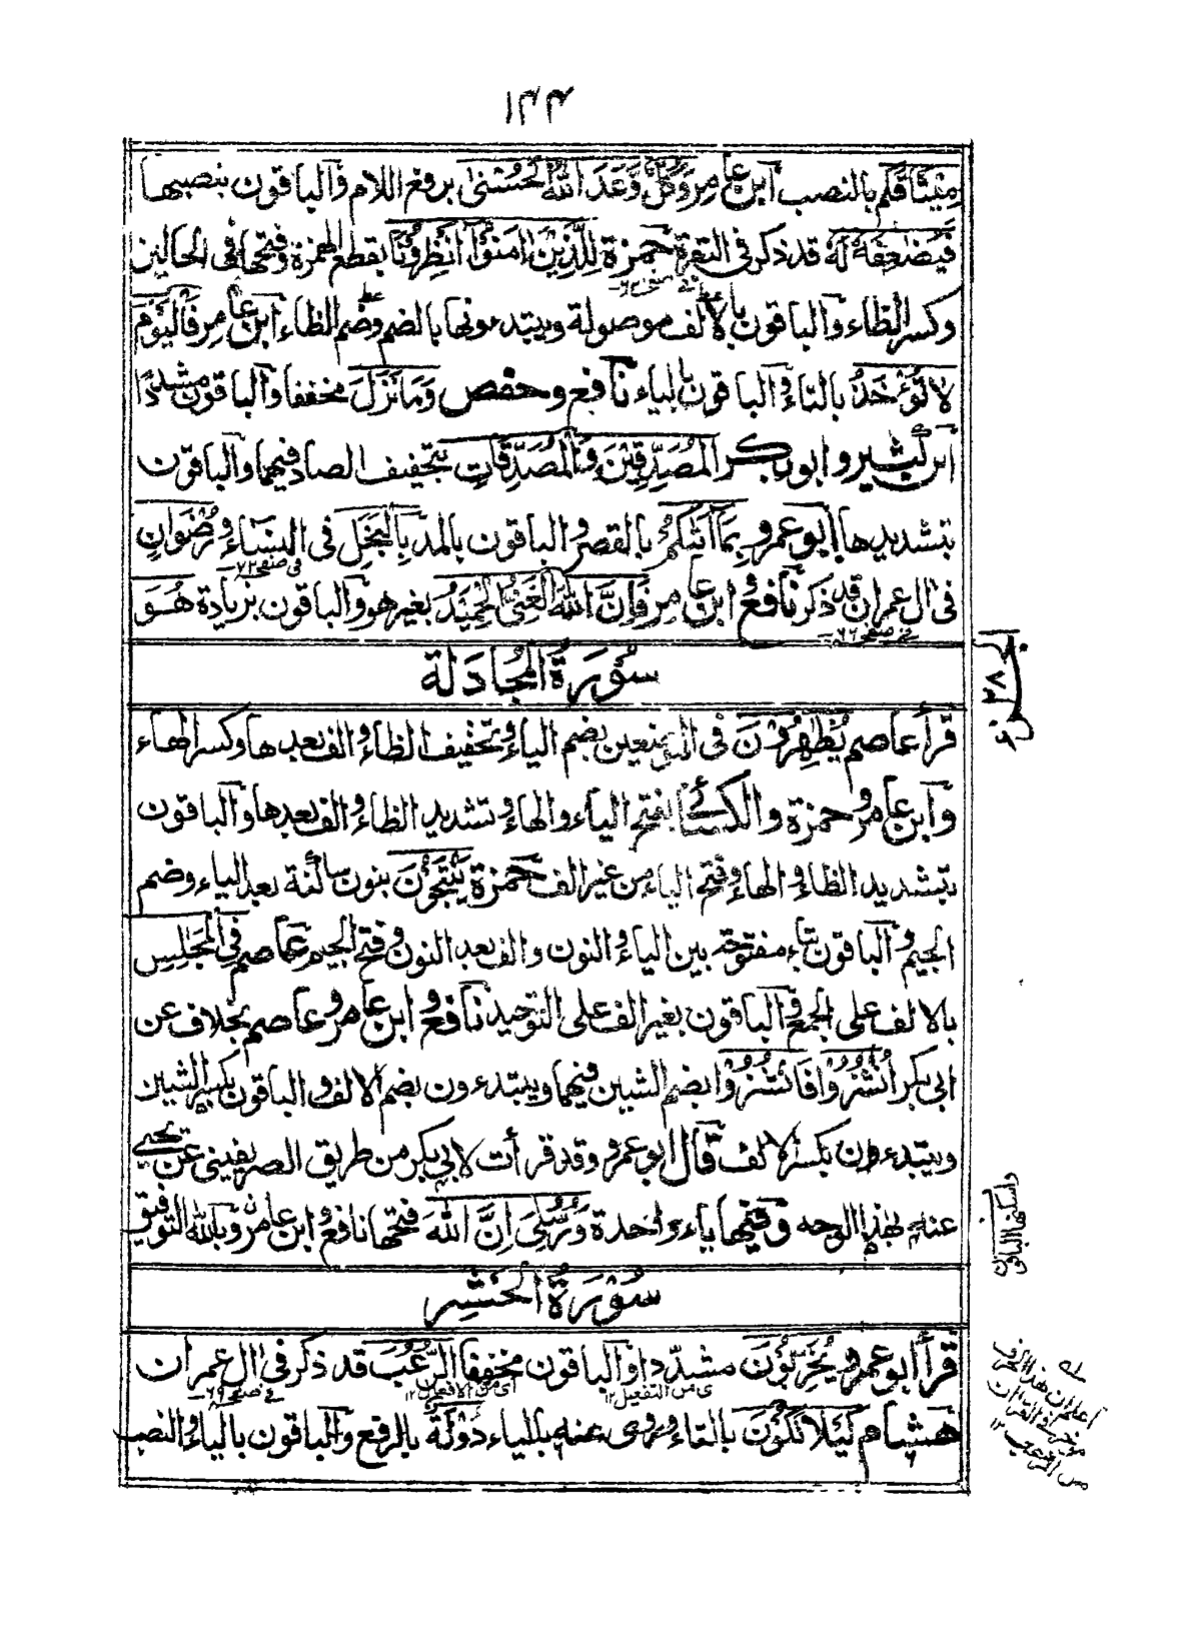 ١٣٣
مِيثَاقَكُم بالنصب ابن عامر وَكُلٌّ وَّعَدَ اللّٰهُ الْحُسْنٰى برفع اللام والباقون بنصبها
فَيُضٰعِفَهٗ لَهٗ قد ذكر فى البقرة حمزة لِلَّذِيْنَ اٰمَنُوْا اَنْظِرُوْنَا بقطع الهمزة وفتحها فى الحالين
وكسر الظاء والباقون بالالف موصولة ويبتدءونها بالضم وضم الظاء ابن عامر فَالْيَوْمَ
لَا تُؤْخَذُ بالتاء والباقون بالياء نافع وحفص وَمَا نَزَلَ مخففا والباقون مشددًا
ابن كثير وابوبكر الْمُصَدِّقِيْنَ وَالْمُصَدِّقَاتِ بتخفيف الصاد فيهما والباقون
بتشديدها ابو عمرو بِمَآ اَتٰىكُمْ بالقصر والباقون بالمد بِالْبُخْلِ فى النساء و رِضْوَانٍ
فى صفحه ٧٢
فى ال عمران قد ذكر نافع وابن عامر فَاِنَّ اللّٰهَ الْغَنِيُّ الْحَمِيْدُ بغير هو والباقون بزيادة هُوَ
فے صفحه ٦٦
سُوْرَةُ الْمُجَادَلَة
قرأ عاصم يُظٰهِرُوْنَ فى الموضعين بضم الياء وتخفيف الظاء والف بعدها وكسر الهاء
وابن عامر وحمزة والكسائى بفتح الياء والهاء وتشديد الظاء والف بعدها والباقون
بتشديد الظاء والهاء وفتح الياء من غير الف حمزة يَنْتَجُوْنَ بنون ساكنة بعد الياء وضم
الجيم والباقون بتاء مفتوحة بين الياء والنون والف بعد النون وفتح الجيم عاصم فِى الْمَجٰلِسِ
بالالف على الجمع والباقون بغير الف على التوحيد نافع وابن عامر وعاصم بخلاف عن
ابى بكر انْشُزُوْا فَانْشُزُوْا بضم الشين فيهما ويبتدءون بضم الالف والباقون بكسر الشين
ويبتدءون بكسر الالف قال ابو عمرو وقد قرأت لابى بكر من طريق الصريفينى عن يحيى
عنه بهذا الوجه وفيها ياء واحدة وَرُسُلِىْ اِنَّ اللّٰهَ فتحها نافع وابن عامر وبالله التوفيق
سُوْرَةُ الْحَشْرِ
قرأ ابو عمرو يُخَرِّبُوْنَ مشددا والباقون مخففا الرُّعُبَ قد ذكر فى ال عمران
اى من التفعيل ١٢
اى من الافعال ١٢
فے صفحه ٦٩
هشام كَيْلَا تَكُوْنَ بالتاء وروى عنه بالياء دُوْلَةٌ بالرفع والباقون بالياء والنصب
الجزء ٢٨
واسكنها الباقون
اعلم ان هذا الحرف